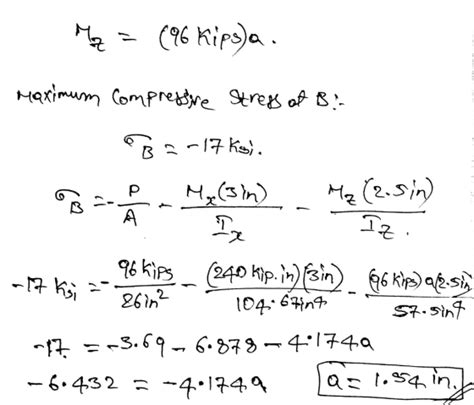 M_z = (96 Kips)a.
Maximum Compressive Stress at B:-
σ_B = -17 Ksi.
σ_B = -P/A - M_x(3in)/I_x - M_z(2.5in)/I_z.
-17 Ksi = -96 Kips/26in² - (240 Kip.in)(3in)/104.67in⁴ - (96 Kips)a(2.5in)/57.5in⁴
-17 = -3.69 - 6.878 - 4.174a
-6.432 = -4.174a a = 1.54 in.